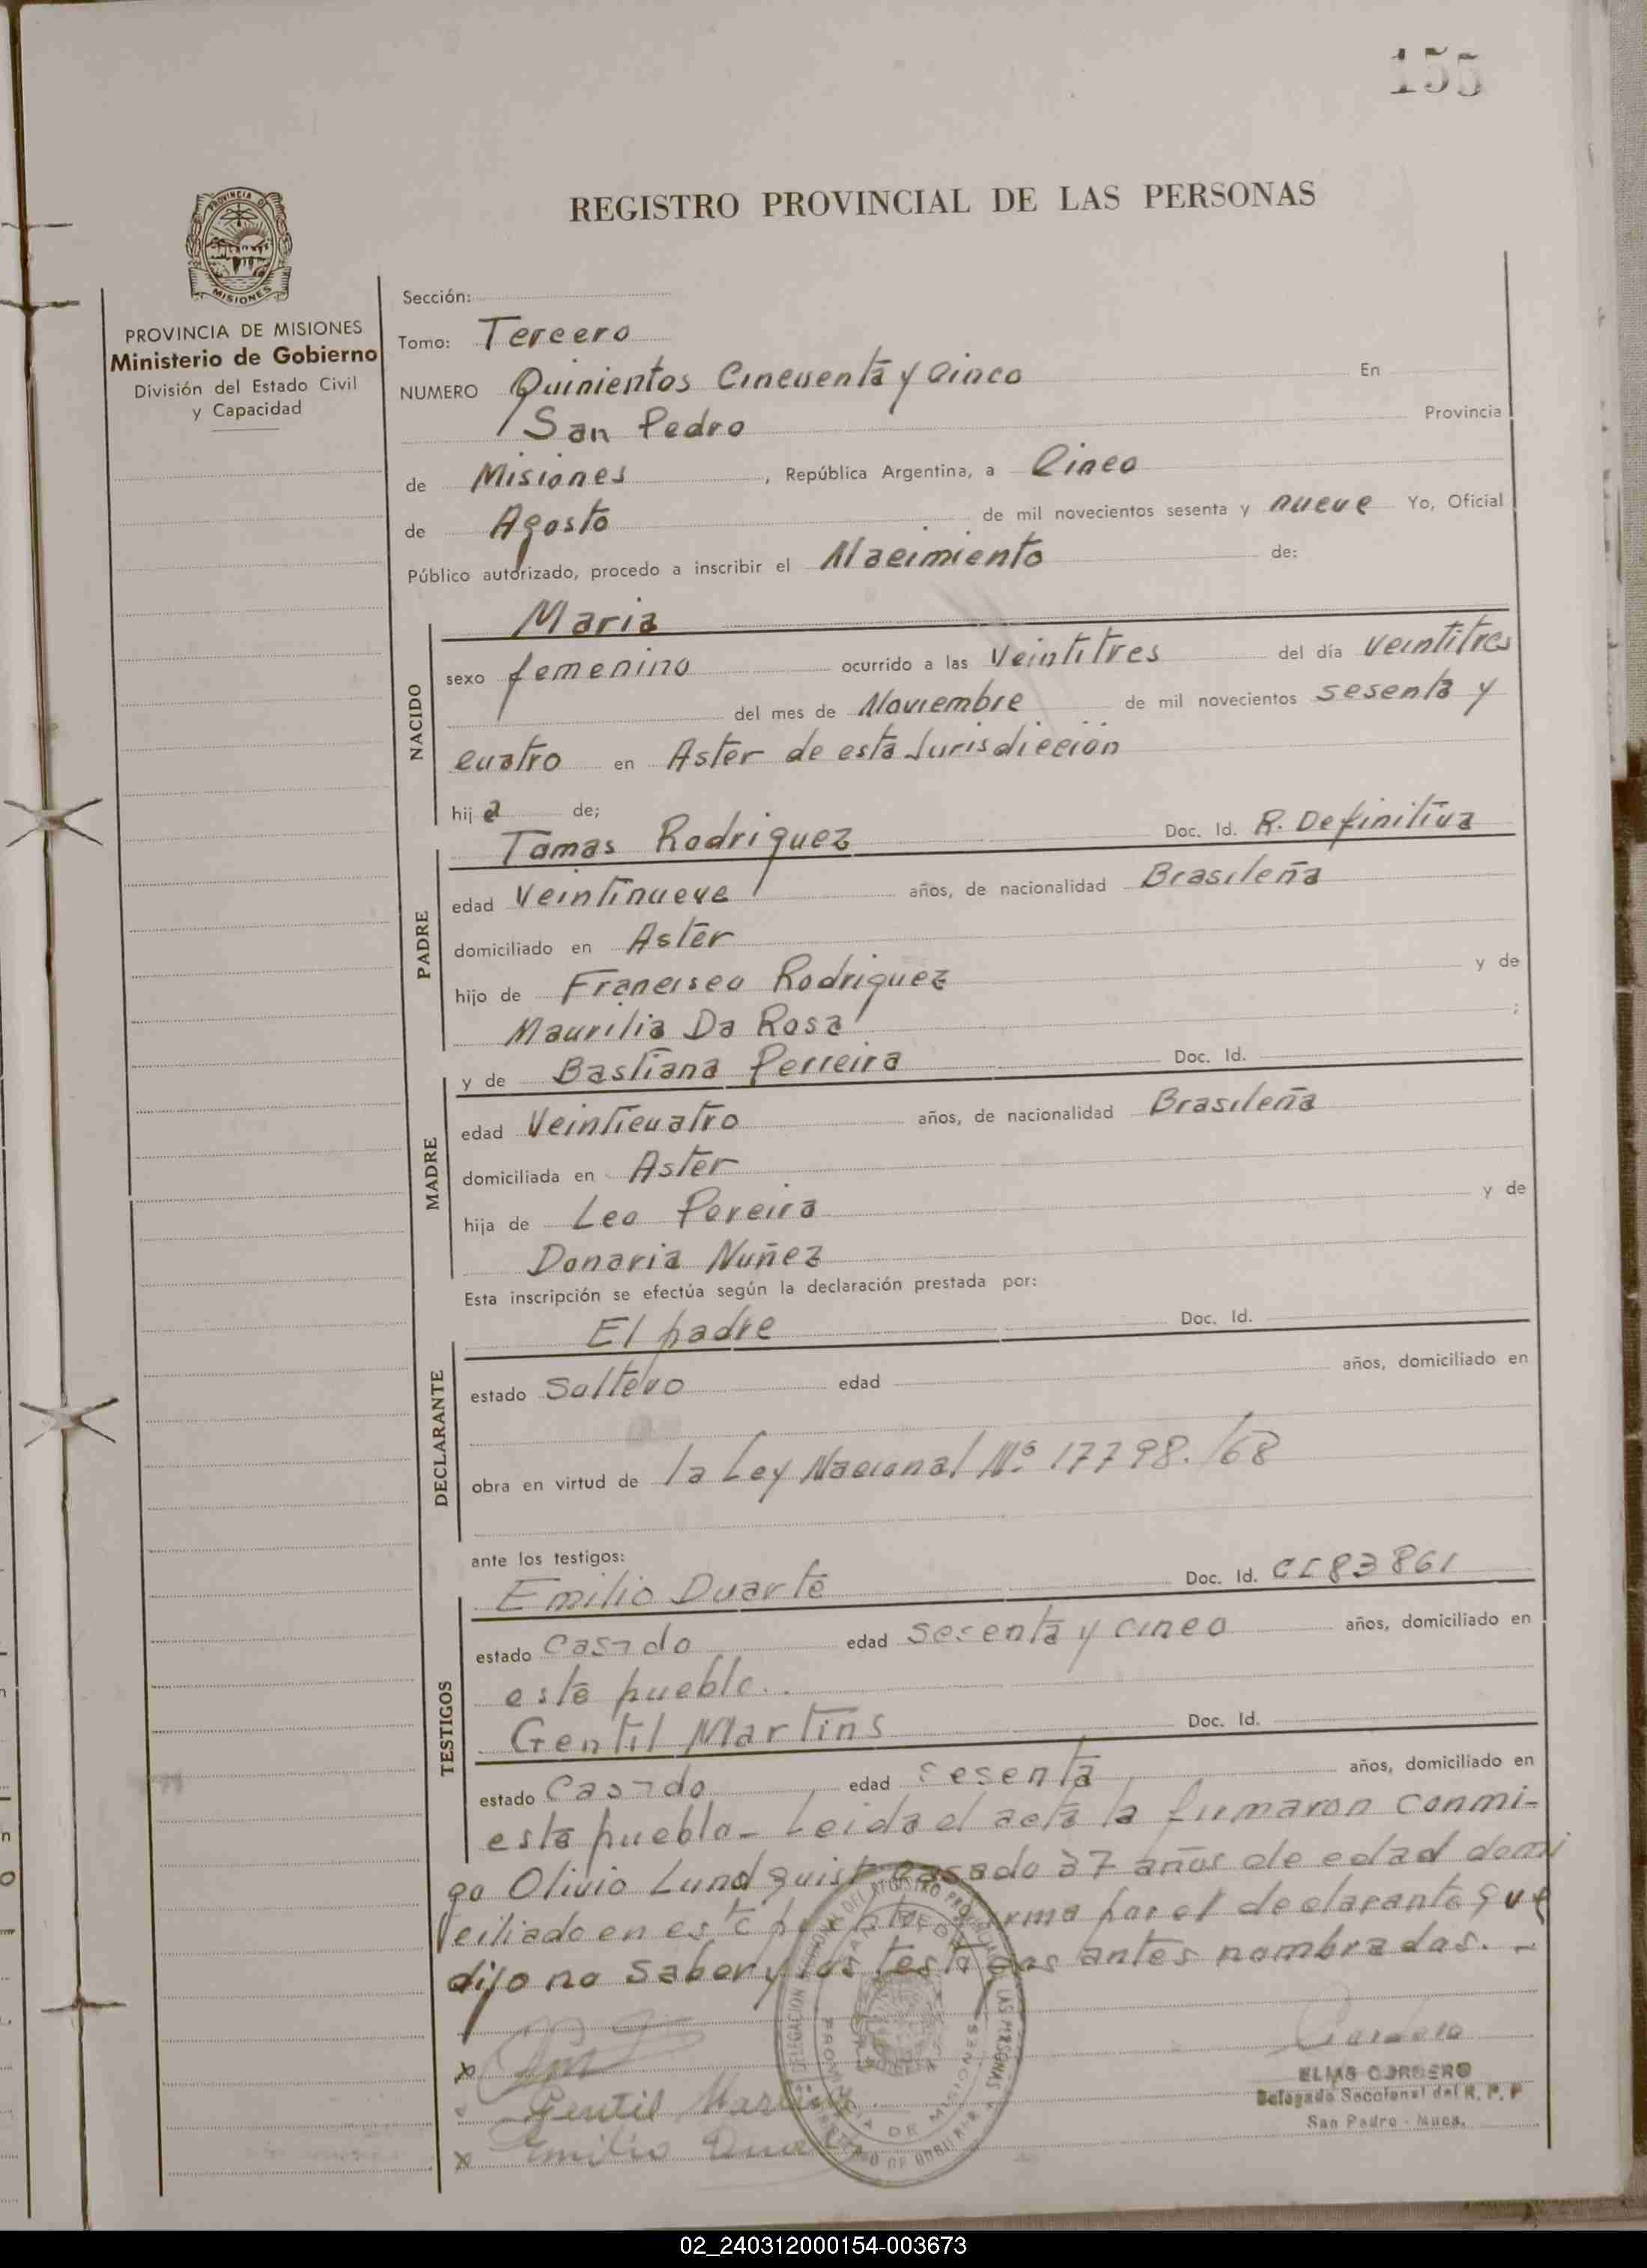 155
REGISTRO PROVINCIAL DE LAS PERSONAS
PROVINCIA DE MISIONES
Ministerio de Gobierno
División del Estado Civil
y Capacidad
Sección:
Tomo: Tercero
NUMERO Quinientos Cincuenta y Cinco En
San Pedro Provincia
de Misiones, República Argentina, a Cinco
de Agosto de mil novecientos sesenta y nueve Yo, Oficial
Público autorizado, procedo a inscribir el Nacimiento de:
NACIDO
Maria
sexo femenino ocurrido a las Veintitres del día veintitres
del mes de Noviembre de mil novecientos sesenta y
cuatro en Aster de esta Jurisdiccion
hija de;
PADRE
Tomas Rodriguez Doc. Id. R. Definitiva
edad Veintinueve años, de nacionalidad Brasileña
domiciliado en Aster
hijo de Francisco Rodriguez y de
Maurilia Da Rosa ;
MADRE
y de Bastiana Perreira Doc. Id.
edad Veinticuatro años, de nacionalidad Brasileña
domiciliada en Aster
hija de Leo Pereira y de
Donaria Nuñez
Esta inscripción se efectúa según la declaración prestada por:
DECLARANTE
El padre Doc. Id.
estado Soltero edad años, domiciliado en
obra en virtud de la Ley Nacional Nº 17798./68
ante los testigos:
TESTIGOS
Emilio Duarte Doc. Id. CI 83861
estado Casado edad sesenta y cinco años, domiciliado en
este pueblo..
Gentil Martins Doc. Id.
estado Casado edad sesenta años, domiciliado en
este pueblo_ Leida el acta la firmaron conmi-
go Olivio Lundquist casado 27 años de edad domi
ciliado en este firma por el declarante que
dijo no saber y los testigos antes nombrados. _
x
Gentil Martins
x Emilio Duarte
ELIAS CORDERO
Delegado Seccional del R. P. P
San Pedro - Mnes.
02_240312000154-003673